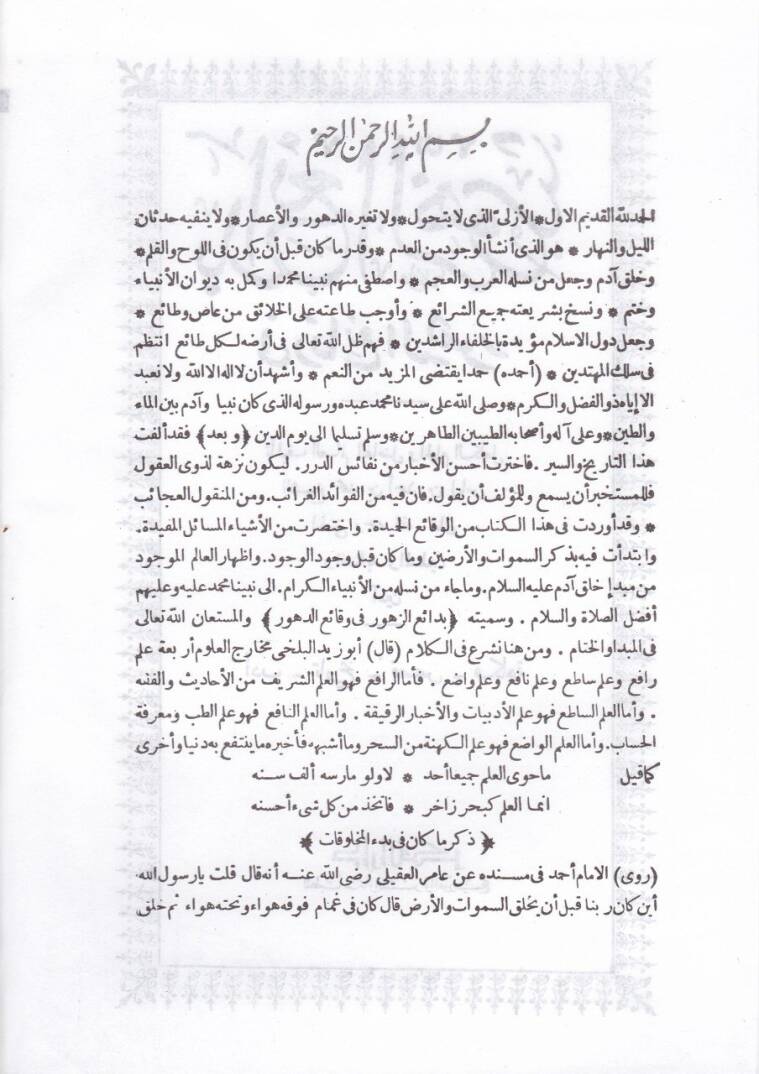 بسم الله الرحمن الرحيم
الحمد لله القديم الاول * الأزلى الذى لا يتحول * ولا تغيره الدهور والأعصار * ولا ينفيه حدثان
الليل والنهار * هو الذى أنشأ الوجود من العدم * وقدر ما كان قبل أن يكون فى اللوح والقلم *
وخلق آدم وجعل من نسله العرب والعجم * واصطفى منهم نبينا محمدا وكمل به ديوان الأنبياء
وختم * ونسخ بشريعته جميع الشرائع * وأوجب طاعته على الخلائق من عاص وطائع *
وجعل دول الاسلام مؤيدة بالخلفاء الراشدين * فهم ظل الله تعالى فى أرضه لكل طائع انتظم
فى سلك المهتدين * (أحمده) حمدا يقتضى المزيد من النعم * وأشهد أن لا اله الا الله ولا نعبد
الا اياه ذو الفضل والكرم * وصلى الله على سيدنا محمد عبده ورسوله الذى كان نبيا وآدم بين الماء
والطين * وعلى آله وأصحابه الطيبين الطاهرين * وسلم تسليما الى يوم الدين ﴿وبعد﴾ فقد ألفت
هذا التاريخ والسير . فاخترت أحسن الأخبار من نفائس الدرر . ليكون نزهة لذوى العقول
فللمستخبر أن يسمع وللمؤلف أن يقول . فان فيه من الفوائد الغرائب . ومن المنقول العجائب
* وقد أوردت فى هذا الكتاب من الوقائع الجيدة . واختصرت من الأشياء المسائل المفيدة .
وابتدأت فيه بذكر السموات والأرضين وما كان قبل وجود الوجود . واظهار العالم الموجود
من مبدا خلق آدم عليه السلام . وما جاء من نسله من الأنبياء الكرام . الى نبينا محمد عليه وعليهم
أفضل الصلاة والسلام . وسميته ﴿بدائع الزهور فى وقائع الدهور﴾ والمستعان الله تعالى
فى المبدا والختام . ومن هنا نشرع فى الكلام (قال) أبو زيد البلخى مخارج العلوم أربعة علم
رافع وعلم ساطع وعلم نافع وعلم واضع . فأما الرافع فهو العلم الشريف من الأحاديث والفقه
. وأما العلم الساطع فهو علم الأدبيات والأخبار الرقيقة . وأما العلم النافع فهو علم الطب ومعرفة
الحساب . وأما العلم الواضع فهو علم الكهنة من السحر وما أشبهه فأخيره ما ينتفع به دنيا وأخرى
كما قيل ما حوى العلم جميعا أحد * لا ولو مارسه ألف سنه
انما العلم كبحر زاخر * فاتخذ من كل شىء أحسنه
* ﴿ذكر ما كان فى بدء المخلوقات﴾ *
(روى) الامام أحمد فى مسنده عن عامر العقيلى رضى الله عنه أنه قال قلت يارسول الله
أين كان ربنا قبل أن يخلق السموات والأرض قال كان فى غمام فوقه هواء وتحته هواء ثم خلق